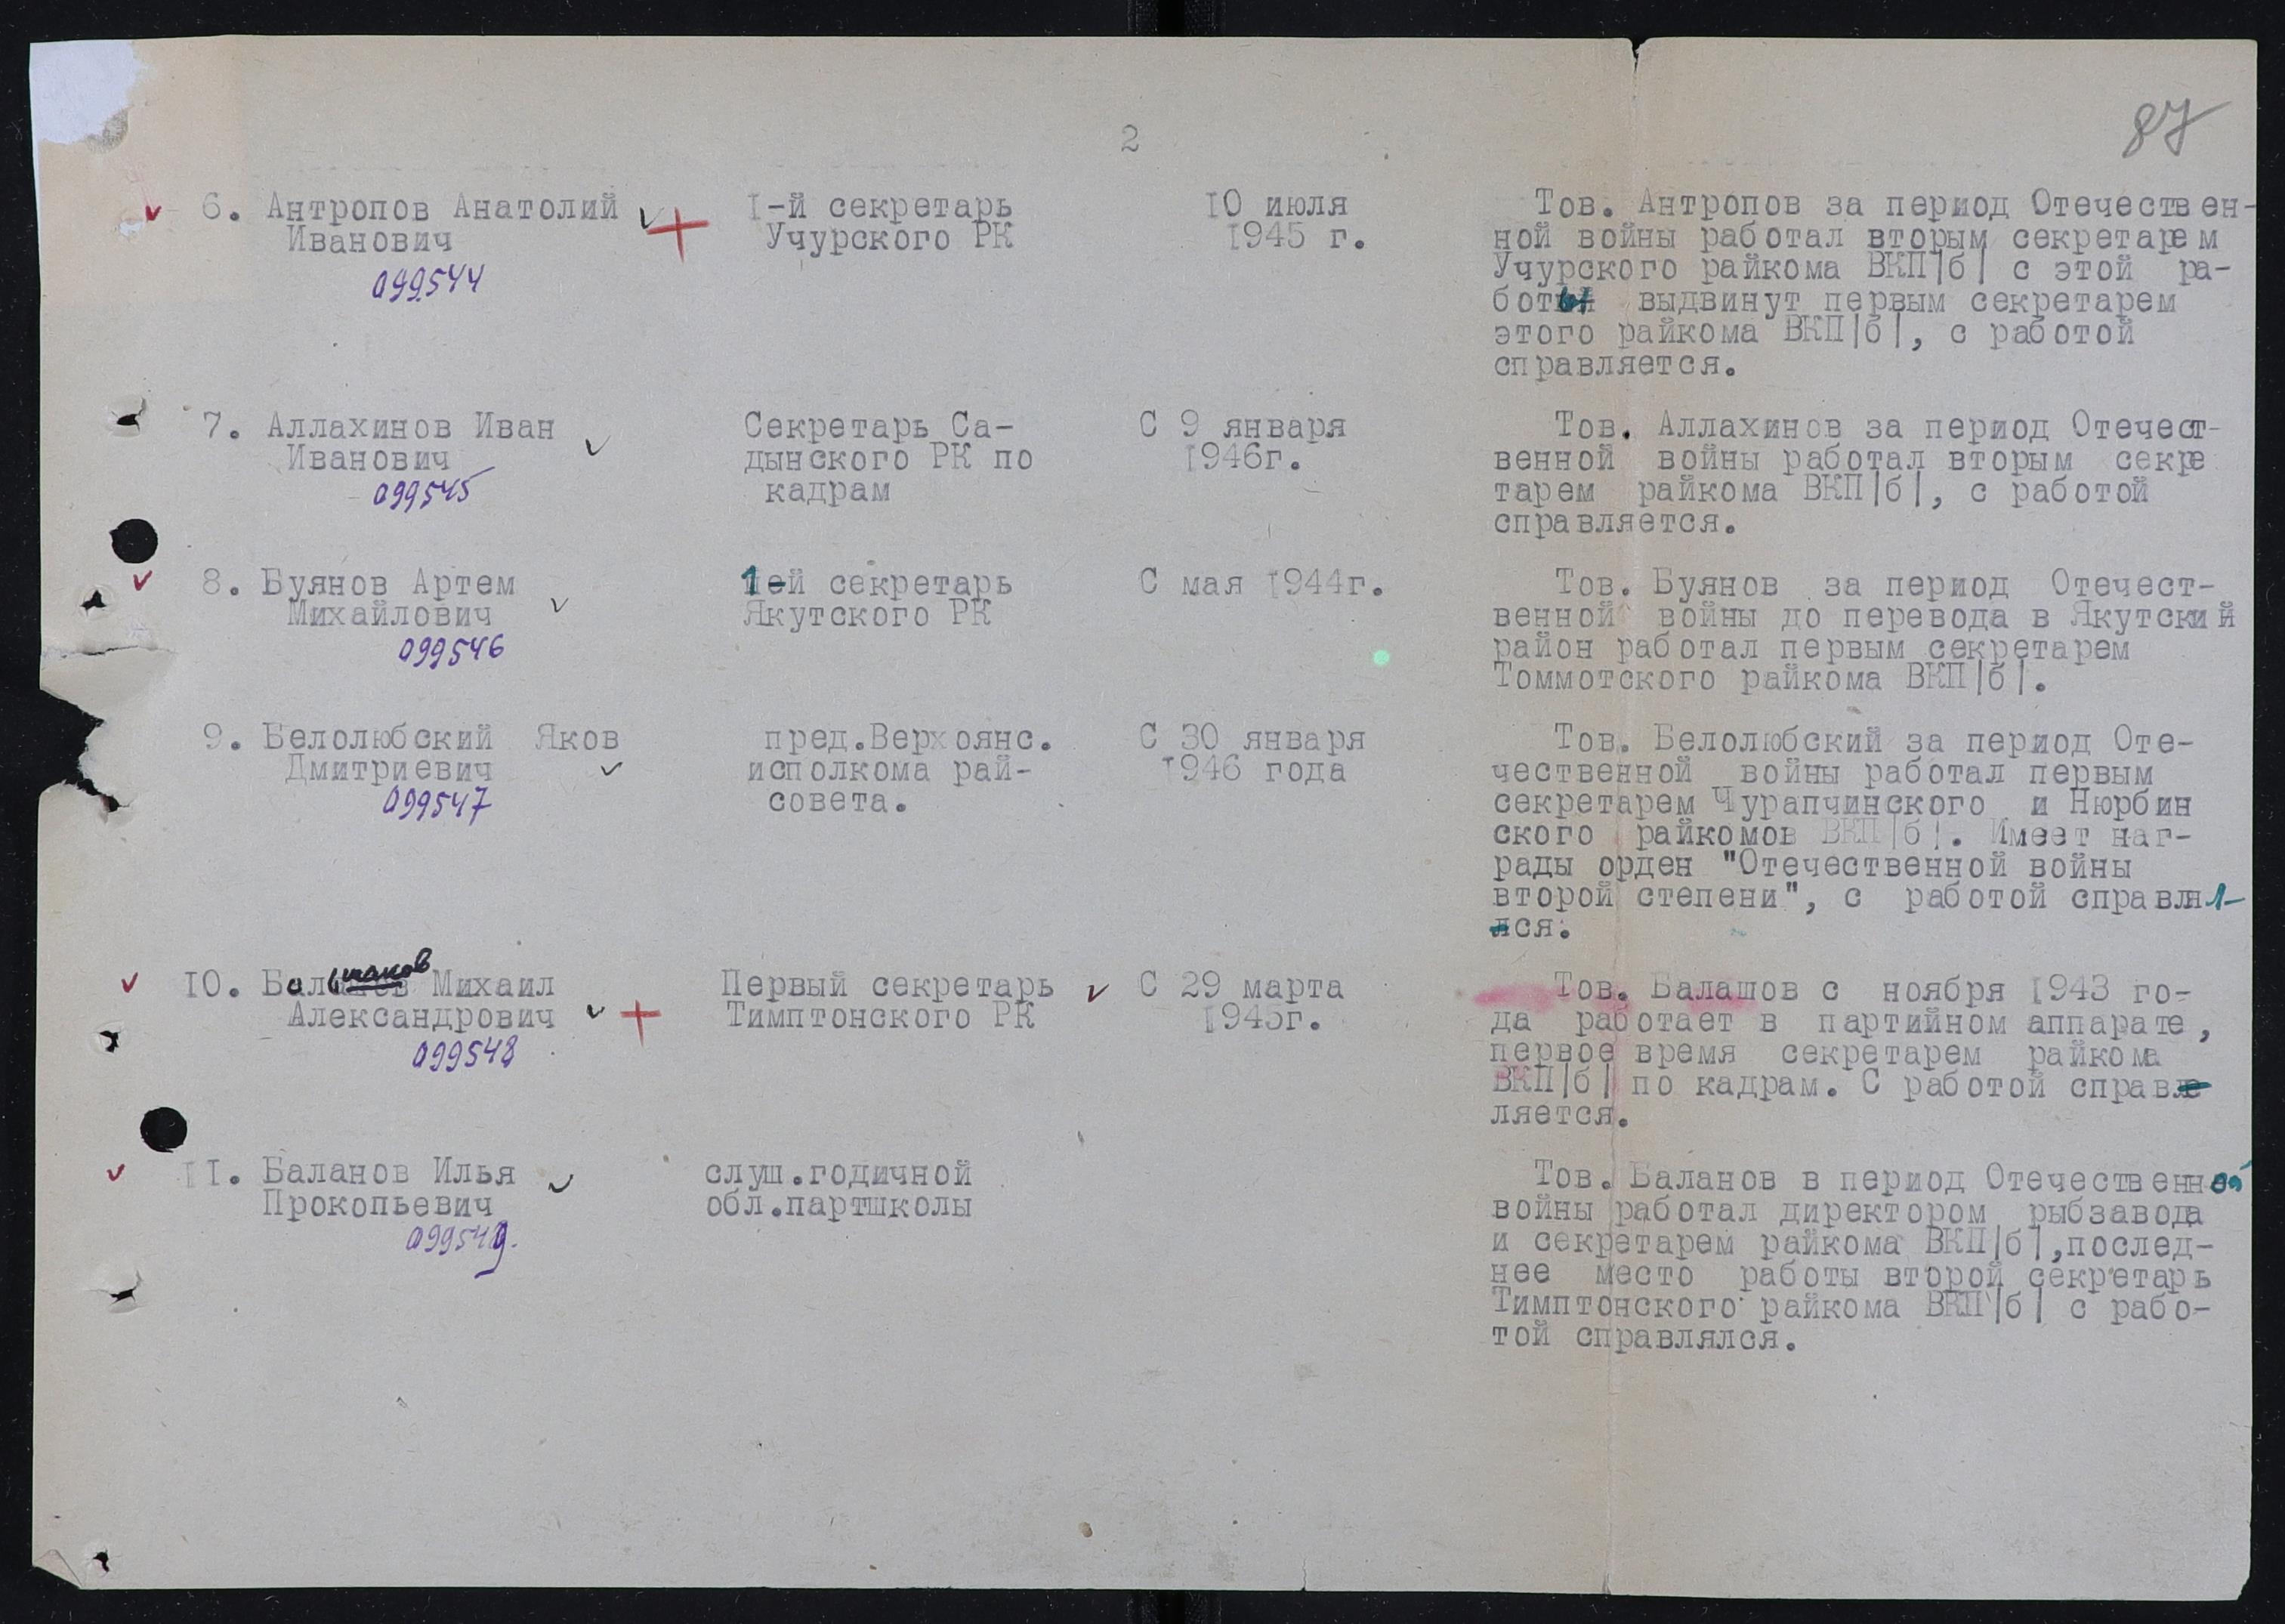 87
2
6. Антропов Анатолий
Иванович
099544
I-й секретарь
Учурского РК
10 июля
1945 г.
Тов. Антропов за период Отечествен-
ной войны работал вторым секретарем
Учурского райкома ВКП|б| с этой ра-
боты выдвинут первым секретарем
этого райкома ВКП|б|, с работой
справляется.
7. Аллахинов Иван
Иванович
099545
Секретарь Са-
дынского РК по
кадрам
С 9 января
1946г.
Тов. Аллахинов за период Отечест-
венной войны работал вторым секре
тарем райкома ВКП|б|, с работой
справляется.
8. Буянов Артем
Михайлович
099546
1-й секретарь
Якутского РК
С мая 1944г.
Тов. Буянов за период Отечест-
венной войны до перевода в Якутский
район работал первым секретарем
Томмотского райкома ВКП|б|.
9. Белолюбский Яков
Дмитриевич
099547
пред.Верхоянс.
исполкома рай-
совета.
С 30 января
1946 года
Тов. Белолюбский за период Оте-
чественной войны работал первым
секретарем Чурапчинского и Нюрбин
ского райкомов ВКП|б|. Имеет наг-
рады орден "Отечественной войны
второй степени", с работой справля-
лся.
10. Михаил
Александрович
099548
Первый секретарь
Тимптонского РК
С 29 марта
1945г.
Тов. Балашов с ноября 1943 го-
да работает в партийном аппарате,
первое время секретарем райкома
ВКП|б| по кадрам. С работой справ
ляется.
11. Баланов Илья
Прокопьевич
099549.
слуш.годичной
обл.партшколы
Тов. Баланов в период Отечественной
войны работал директором рыбзавода
и секретарем райкома ВКП|б|,послед-
нее место работы второй секретарь
Тимптонского райкома ВКП|б| с рабо-
той справлялся.